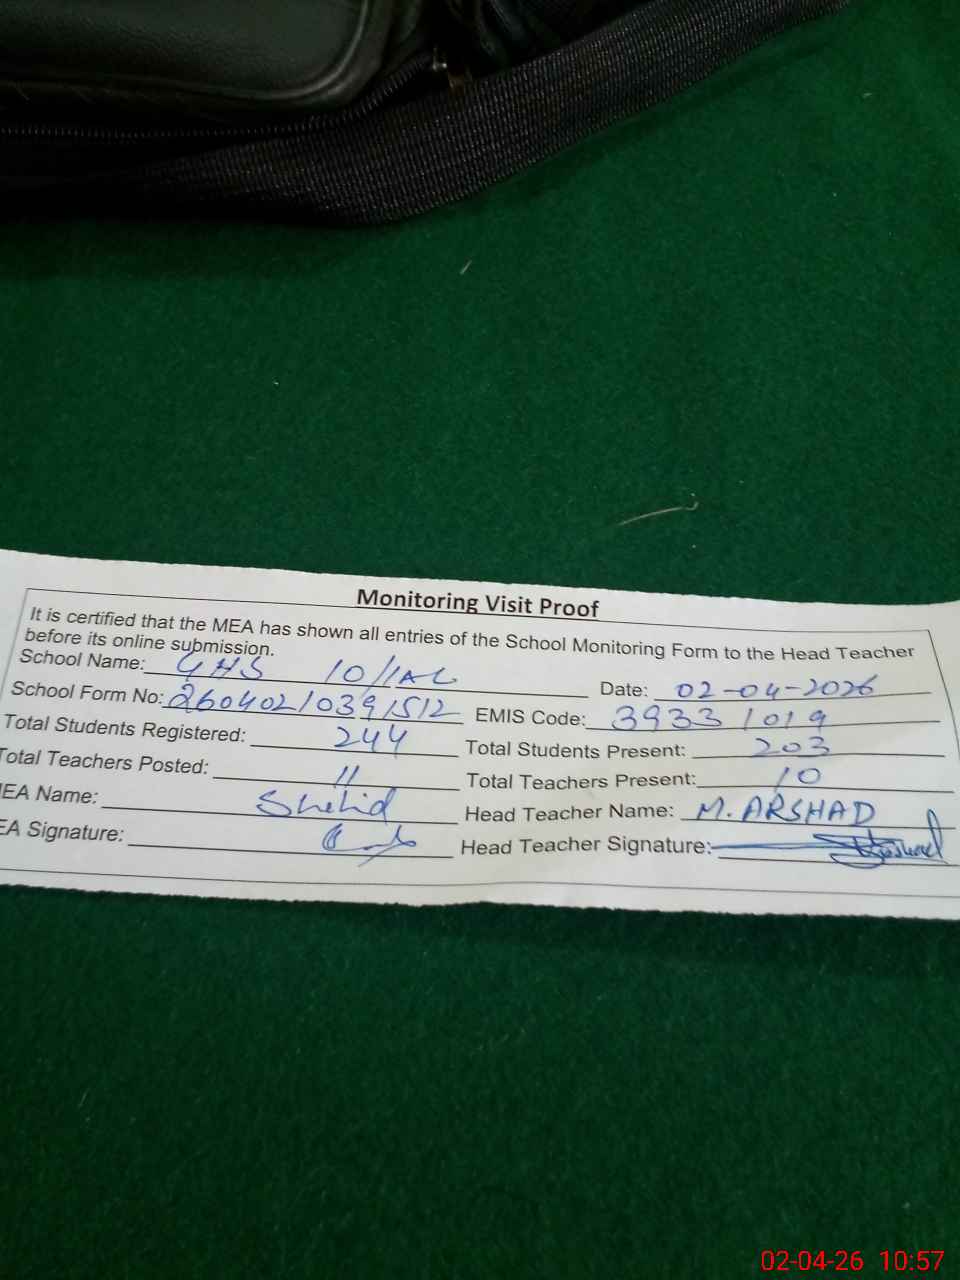 Monitoring Visit Proof
It is certified that the MEA has shown all entries of the School Monitoring Form to the Head Teacher
before its online submission.
School Name: GHS 10/1AL Date: 02-04-2026
School Form No: 26040210391512 EMIS Code: 39331019
Total Students Registered: 244 Total Students Present: 203
Total Teachers Posted: 11 Total Teachers Present: 10
MEA Name: Shahid Head Teacher Name: M. ARSHAD
EA Signature: Head Teacher Signature:
02-04-26 10:57